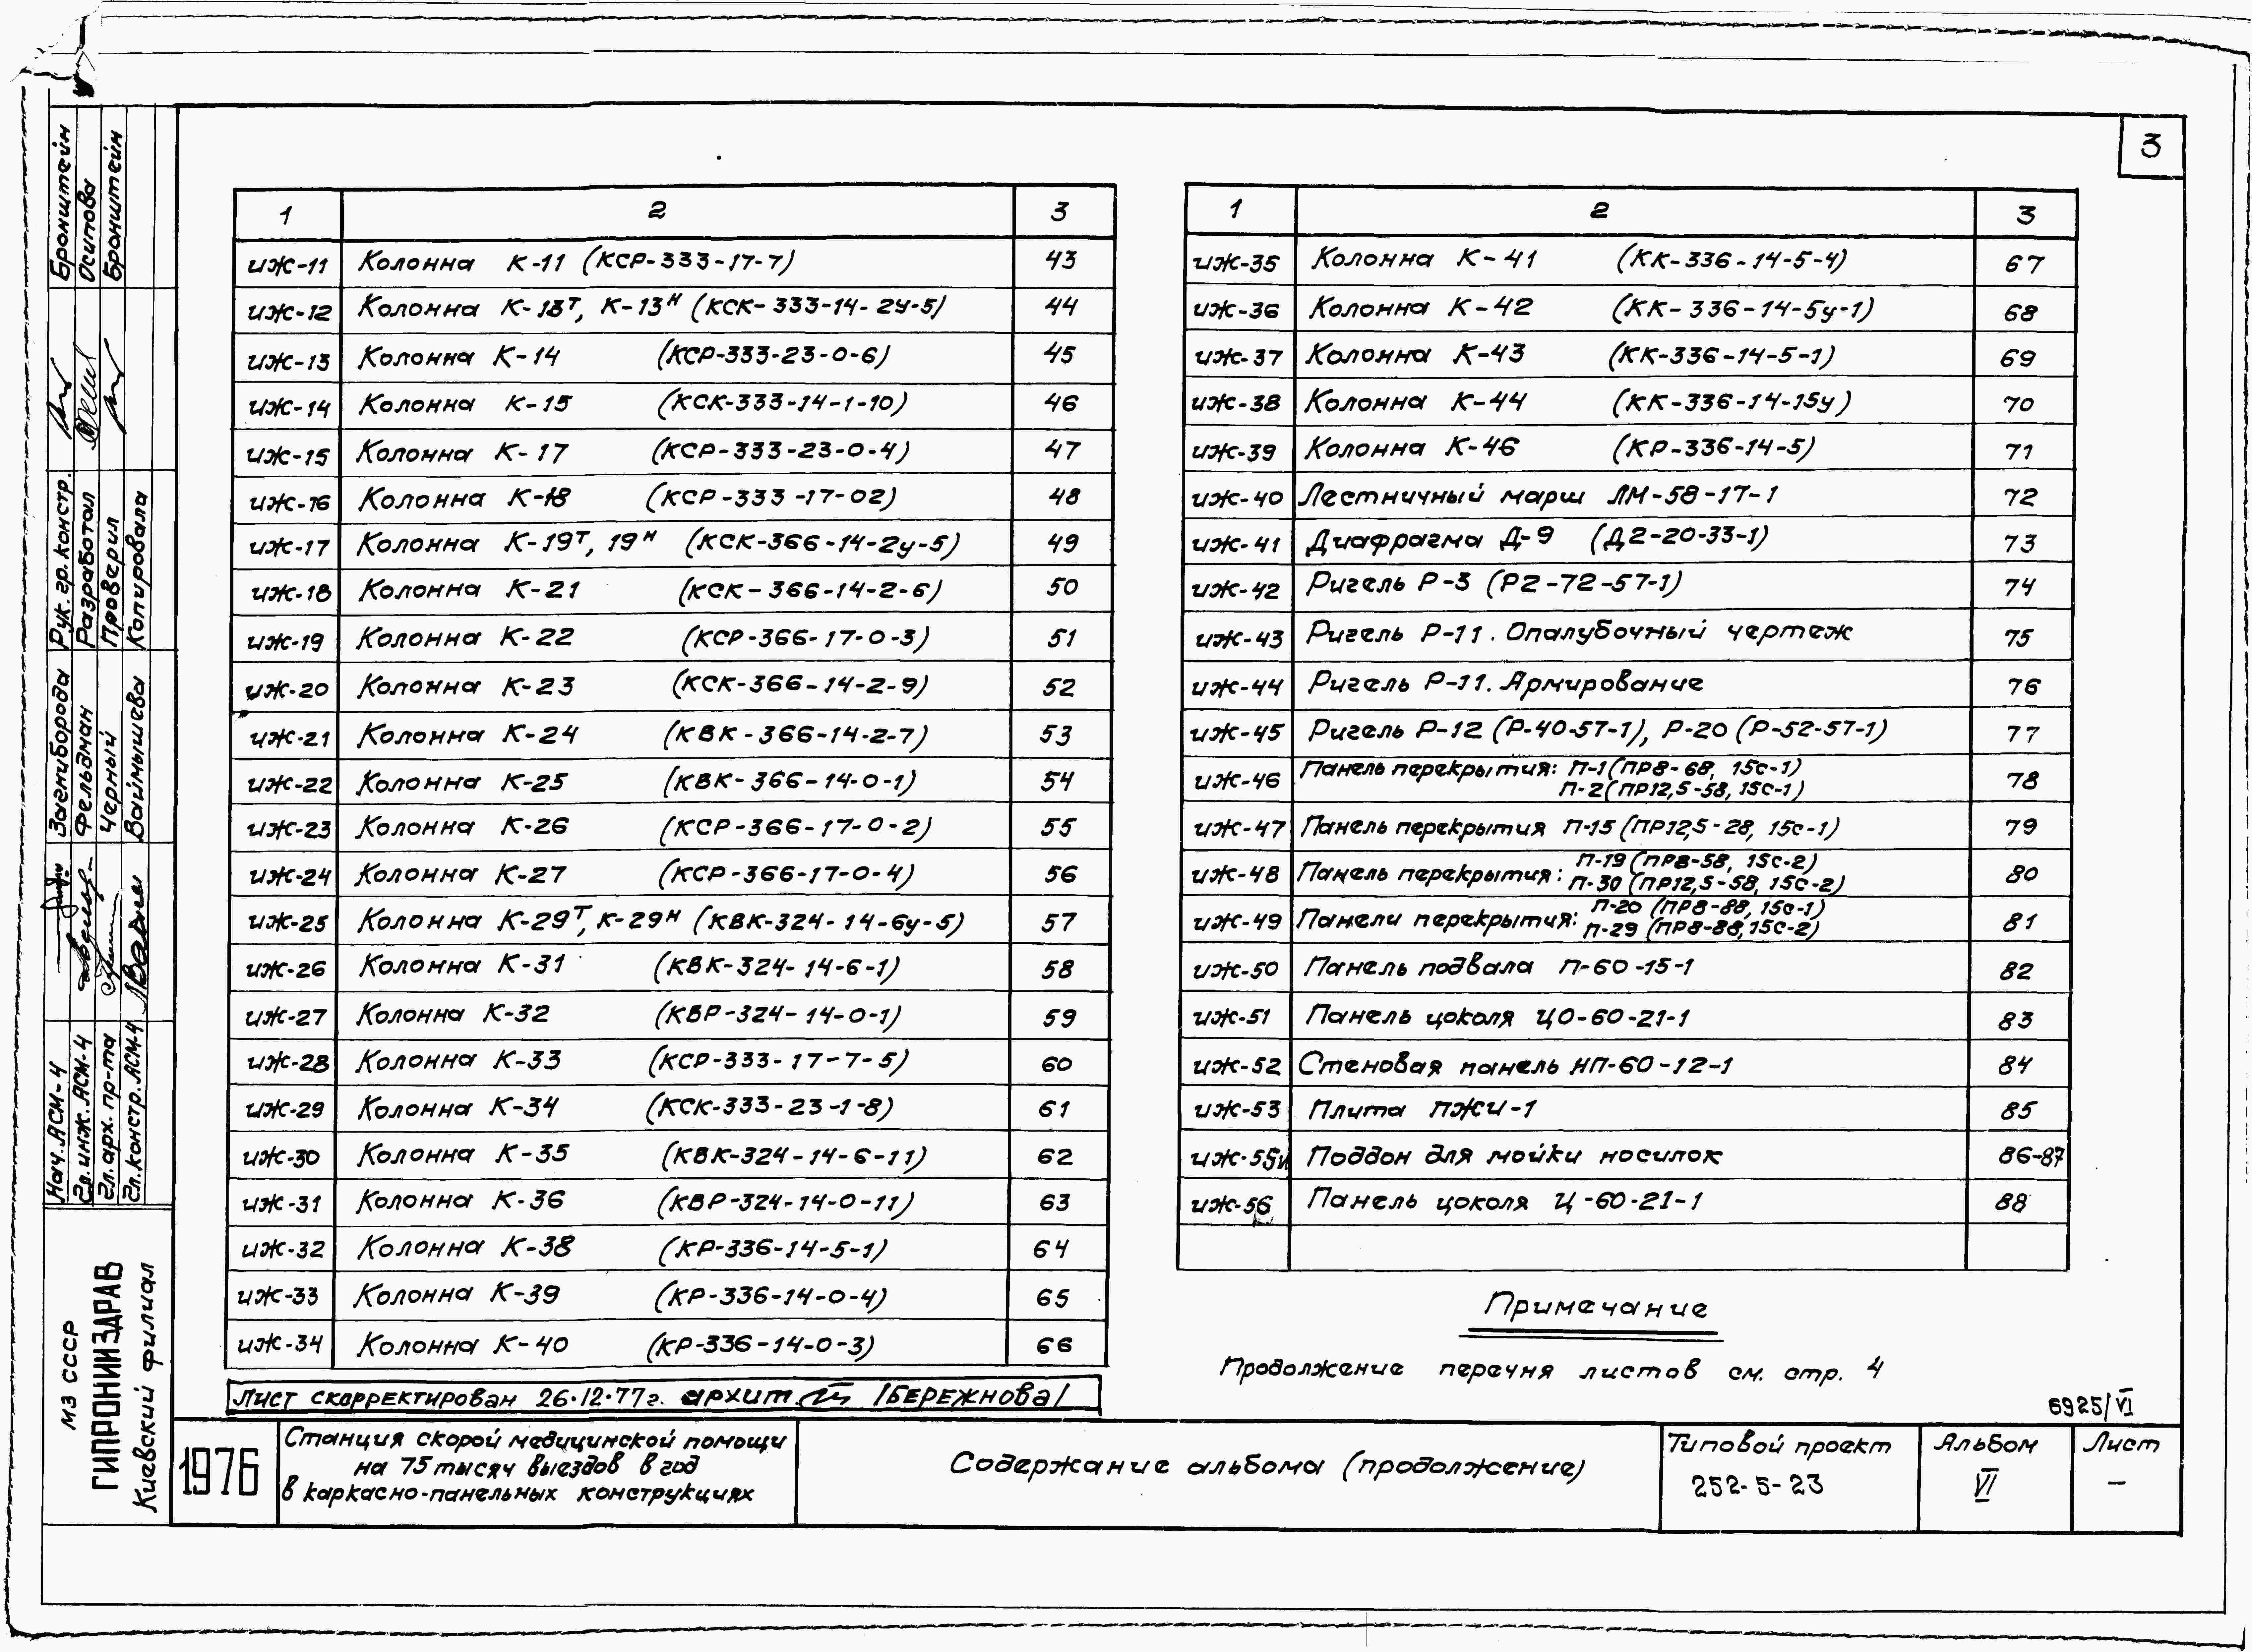 3
1 2 3
ИЖ-11 Колонна К-11 (КСР-333-17-7) 43
ИЖ-12 Колонна К-13Т, К-13Н (КСК-333-14-2У-5) 44
ИЖ-13 Колонна К-14 (КСР-333-23-0-6) 45
ИЖ-14 Колонна К-15 (КСК-333-14-1-10) 46
ИЖ-15 Колонна К-17 (КСР-333-23-0-4) 47
ИЖ-16 Колонна К-18 (КСР-333-17-02) 48
ИЖ-17 Колонна К-19Т, 19Н (КСК-366-14-2у-5) 49
ИЖ-18 Колонна К-21 (КСК-366-14-2-6) 50
ИЖ-19 Колонна К-22 (КСР-366-17-0-3) 51
ИЖ-20 Колонна К-23 (КСК-366-14-2-9) 52
ИЖ-21 Колонна К-24 (КВК-366-14-2-7) 53
ИЖ-22 Колонна К-25 (КВК-366-14-0-1) 54
ИЖ-23 Колонна К-26 (КСР-366-17-0-2) 55
ИЖ-24 Колонна К-27 (КСР-366-17-0-4) 56
ИЖ-25 Колонна К-29Т, К-29Н (КВК-324-14-6у-5) 57
ИЖ-26 Колонна К-31 (КВК-324-14-6-1) 58
ИЖ-27 Колонна К-32 (КВР-324-14-0-1) 59
ИЖ-28 Колонна К-33 (КСР-333-17-7-5) 60
ИЖ-29 Колонна К-34 (КСК-333-23-1-8) 61
ИЖ-30 Колонна К-35 (КВК-324-14-6-11) 62
ИЖ-31 Колонна К-36 (КВР-324-14-0-11) 63
ИЖ-32 Колонна К-38 (КР-336-14-5-1) 64
ИЖ-33 Колонна К-39 (КР-336-14-0-4) 65
ИЖ-34 Колонна К-40 (КР-336-14-0-3) 66
Лист скорректирован 26.12.77г. архит. /БЕРЕЖНОВА/
1 2 3
ИЖ-35 Колонна К-41 (КК-336-14-5-4) 67
ИЖ-36 Колонна К-42 (КК-336-14-5у-1) 68
ИЖ-37 Колонна К-43 (КК-336-14-5-1) 69
ИЖ-38 Колонна К-44 (КК-336-14-15у) 70
ИЖ-39 Колонна К-46 (КР-336-14-5) 71
ИЖ-40 Лестничный марш ЛМ-58-17-1 72
ИЖ-41 Диафрагма Д-9 (Д2-20-33-1) 73
ИЖ-42 Ригель Р-3 (Р2-72-57-1) 74
ИЖ-43 Ригель Р-11. Опалубочный чертеж 75
ИЖ-44 Ригель Р-11. Армирование 76
ИЖ-45 Ригель Р-12 (Р-40-57-1), Р-20 (Р-52-57-1) 77
ИЖ-46 Панель перекрытия: П-1 (ПР8-68, 15с-1) 78
П-2 (ПР12,5-58, 15с-1)
ИЖ-47 Панель перекрытия П-15 (ПР12,5-28, 15с-1) 79
ИЖ-48 Панель перекрытия: П-19 (ПР8-58, 15с-2) 80
П-30 (ПР12,5-58, 15с-2)
ИЖ-49 Панели перекрытия: П-20 (ПР8-88, 15с-1) 81
П-29 (ПР8-88, 15с-2)
ИЖ-50 Панель подвала П-60-15-1 82
ИЖ-51 Панель цоколя ЦО-60-21-1 83
ИЖ-52 Стеновая панель НП-60-12-1 84
ИЖ-53 Плита ПЖИ-1 85
ИЖ-55И Поддон для мойки носилок 86-87
ИЖ-56 Панель цоколя Ц-60-21-1 88
Примечание
Продолжение перечня листов см. стр. 4
6925/VI
1976
Станция скорой медицинской помощи
на 75 тысяч выездов в год
в каркасно-панельных конструкциях
Содержание альбома (продолжение)
Типовой проект
252-5-23
Альбом
VI
Лист
—
МЗ СССР
ГИПРОНИИЗДРАВ
Киевский филиал
Нач. АСМ-4 Загниборода Рук. гр. констр. Бронштейн
Гл. инж. АСМ-4 Фельдман Разработал Осипова
Гл. арх. пр-та Черный Проверил Бронштейн
Гл. констр. АСМ-4 Копировала